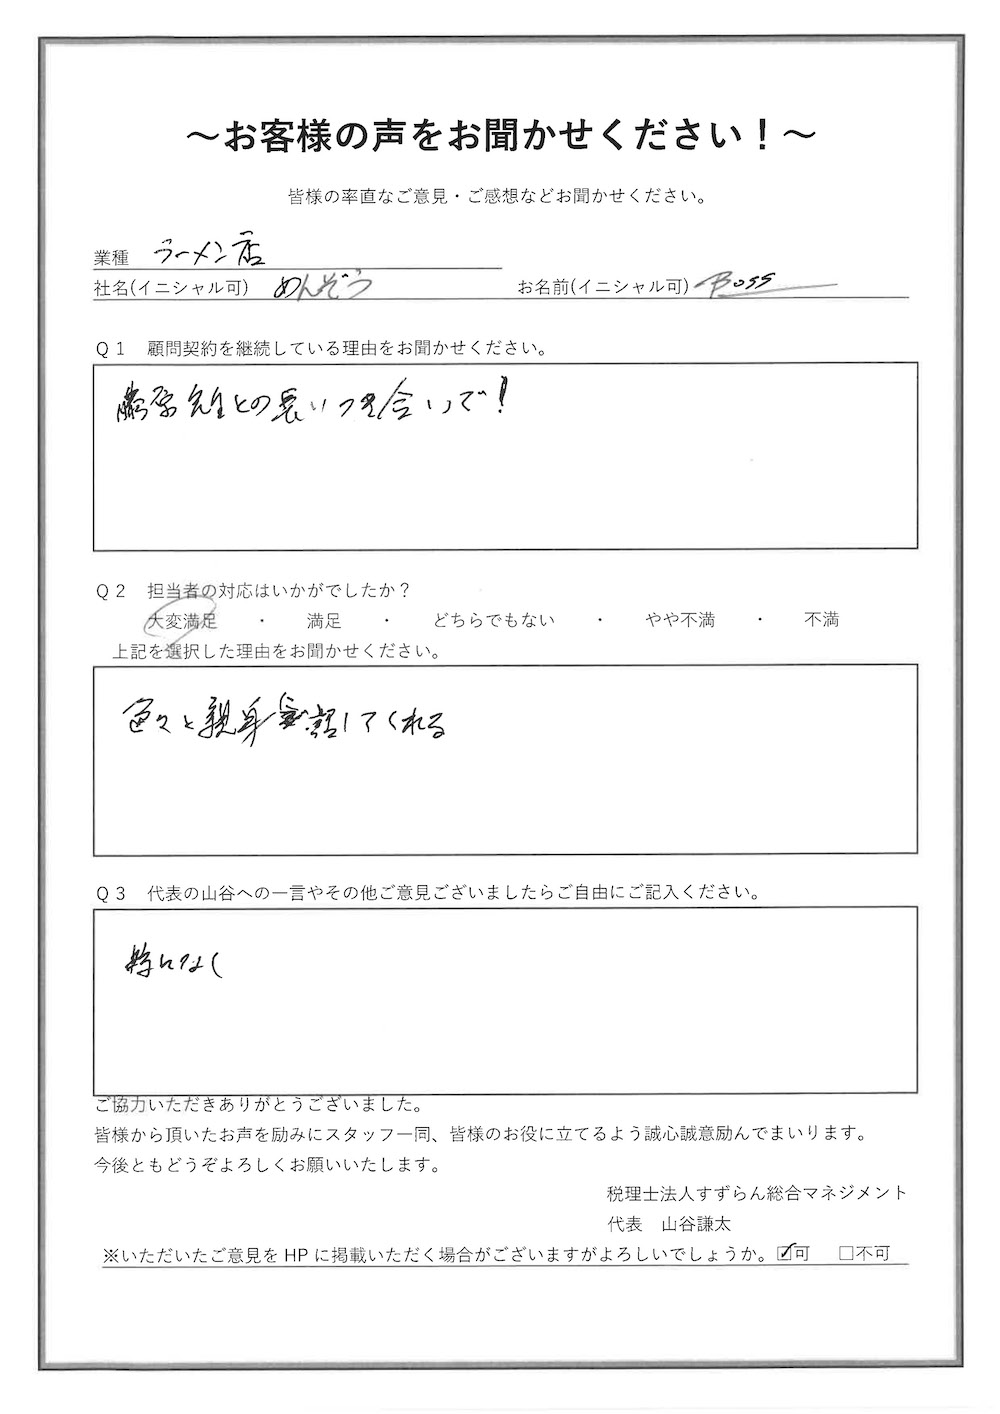 ～お客様の声をお聞かせください！～
皆様の率直なご意見・ご感想などお聞かせください。
業種 ラーメン店
社名(イニシャル可) めんぞう お名前(イニシャル可) Boss
Q1 顧問契約を継続している理由をお聞かせください。
藤原先生との長いつき合いで！
Q2 担当者の対応はいかがでしたか？
大変満足 ・ 満足 ・ どちらでもない ・ やや不満 ・ 不満
上記を選択した理由をお聞かせください。
色々と親身 話してくれる
Q3 代表の山谷への一言やその他ご意見ございましたらご自由にご記入ください。
特になし
ご協力いただきありがとうございました。
皆様から頂いたお声を励みにスタッフ一同、皆様のお役に立てるよう誠心誠意励んでまいります。
今後ともどうぞよろしくお願いいたします。
税理士法人すずらん総合マネジメント
代表 山谷謙太
※いただいたご意見を HP に掲載いただく場合がございますがよろしいでしょうか。☑可 □不可